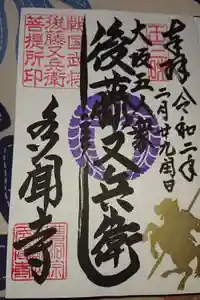 奉拝
令和二年
二月廿九閏日
大坂五人衆
後藤又兵衛
戦国武将
後藤又兵衛
菩提所印
多聞寺